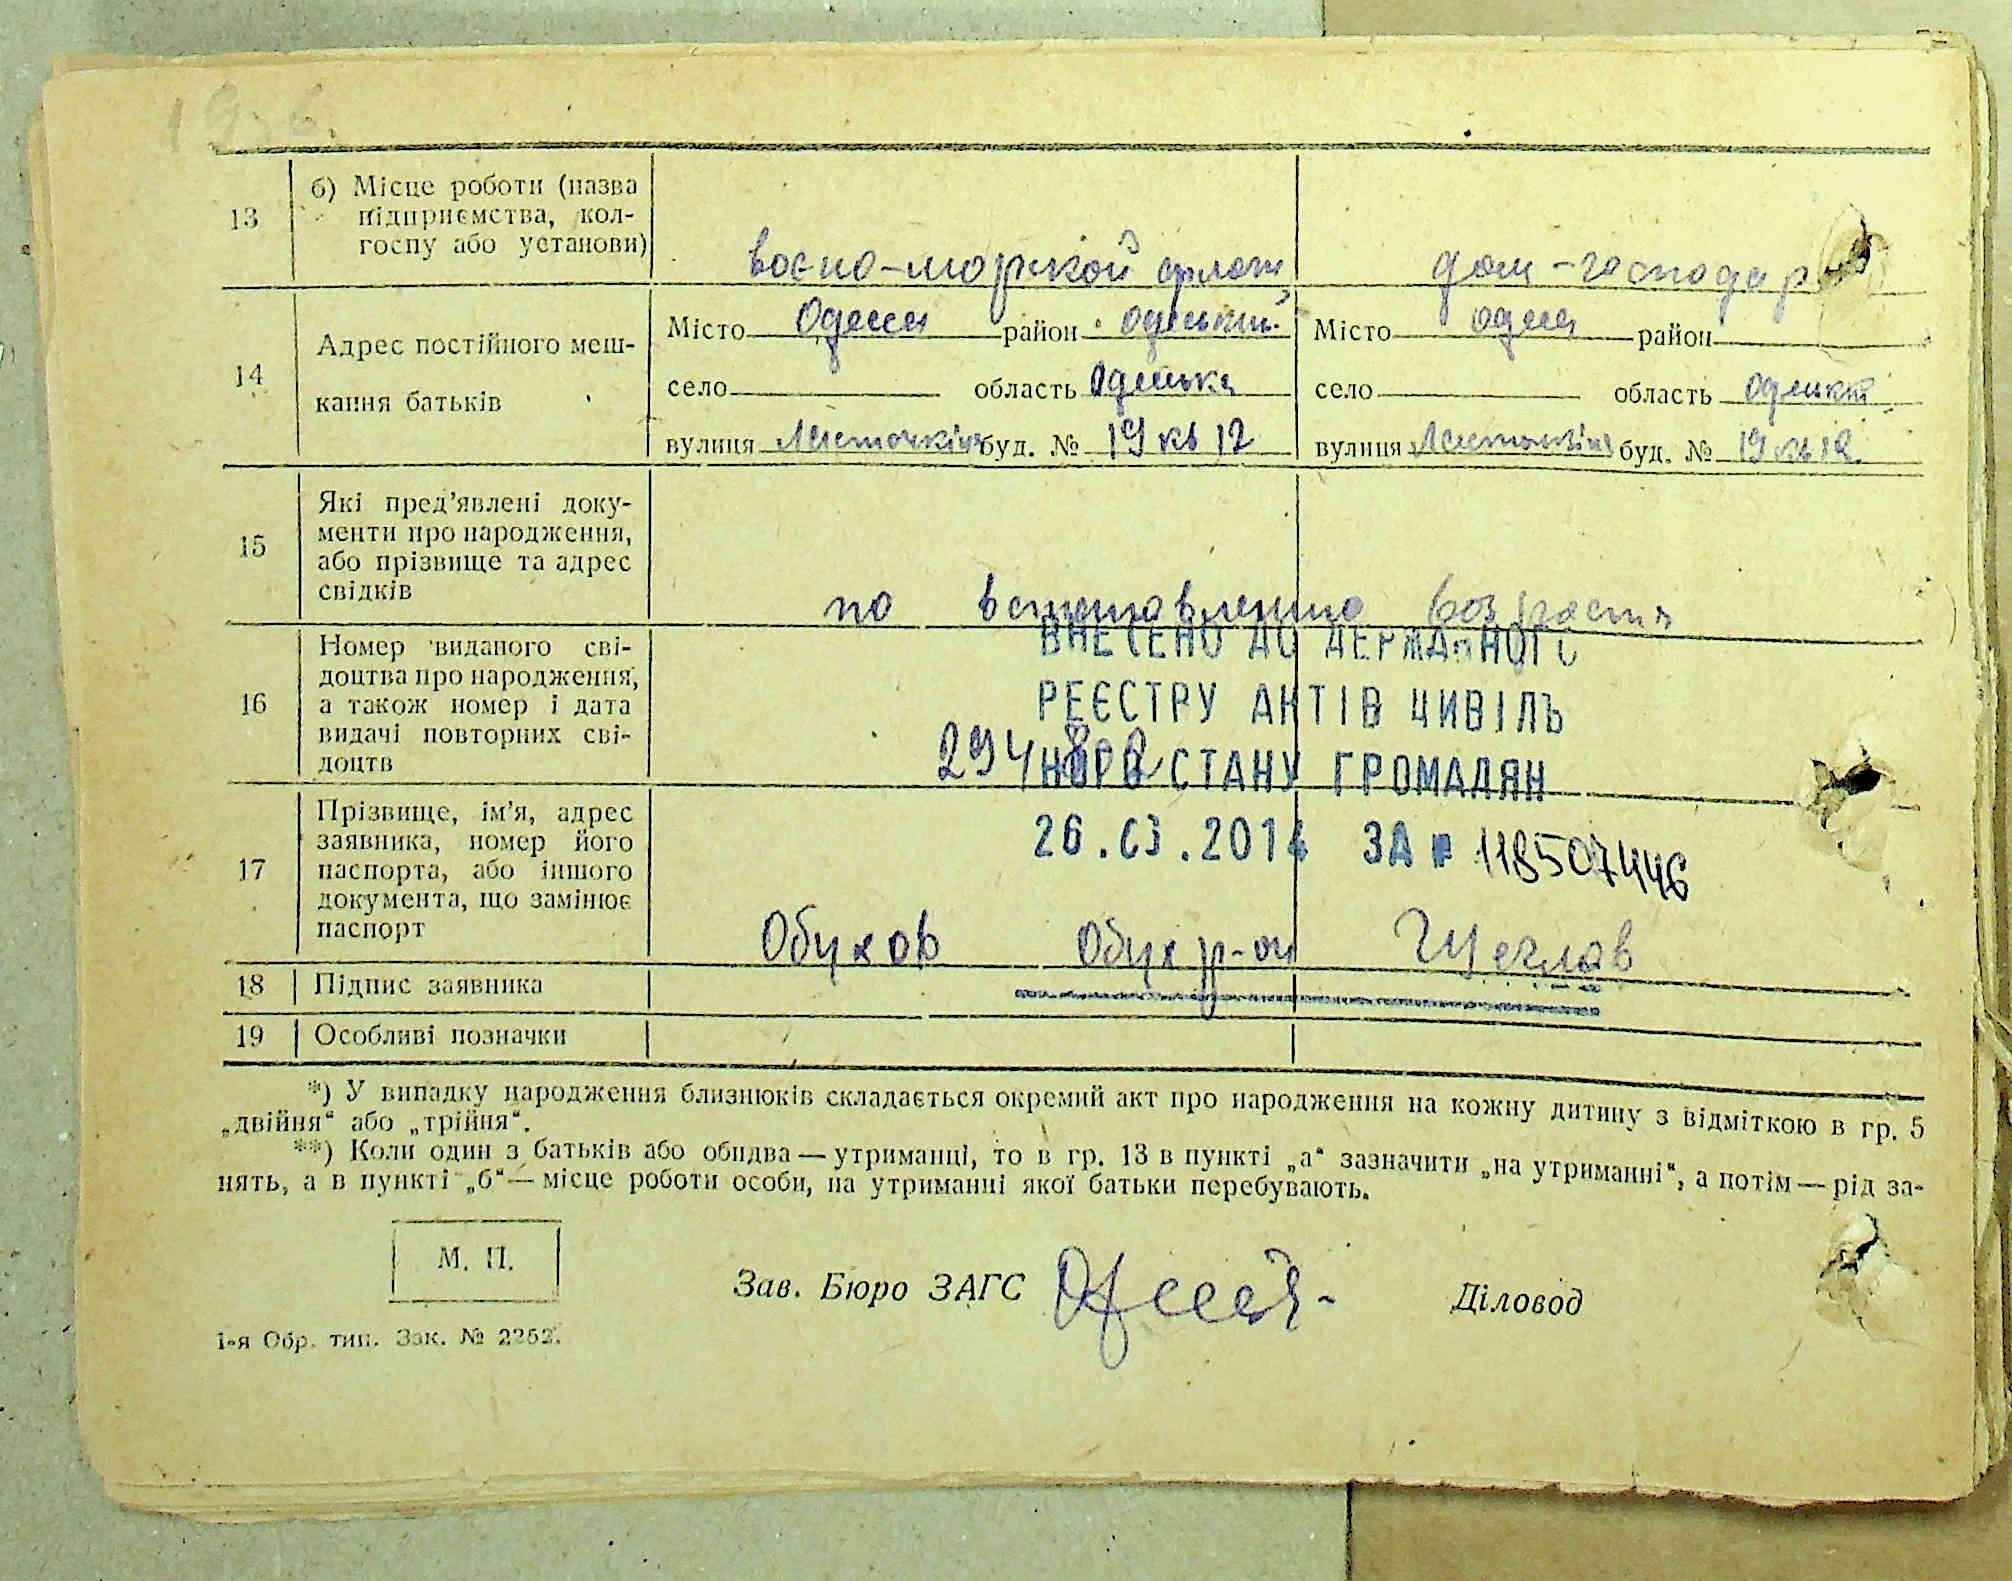 13
б) Місце роботи (назва
підприємства, кол-
госпу або установи)
воєно-морской флот
дом-господар
14
Адрес постійного меш-
кання батьків
Місто Одесса район одеський
село область Одеська
вулиця Ласточкіна буд. № 19 кв 12
Місто одеса район
село область одеська
вулиця Ласточкіна буд. № 19 кв 12
15
Які пред’явлені доку-
менти про народження,
або прізвище та адрес
свідків
по
16
Номер виданого сві-
доцтва про народження,
а також номер і дата
видачі повторних сві-
доцтв
ВНЕСЕНО ДО ДЕРЖАВНОГО
РЕЄСТРУ АКТІВ ЦИВІЛЬ
НОГО СТАНУ ГРОМАДЯН
26.03.2014 ЗА № 118507446
17
Прізвище, ім’я, адрес
заявника, номер його
паспорта, або іншого
документа, що замінює
паспорт
Обухов Обух р-он
18
Підпис заявника
19
Особливі позначки
*) У випадку народження близнюків складається окремий акт про народження на кожну дитину з відміткою в гр. 5
„двійня“ або „трійня“.
**) Коли один з батьків або обидва — утриманці, то в гр. 13 в пункті „а“ зазначити „на утриманні“, а потім — рід за-
нять, а в пункті „б“ — місце роботи особи, на утриманні якої батьки перебувають.
М. П.
Зав. Бюро ЗАГС
Діловод
1-я Обр. тип. Зак. № 2252.